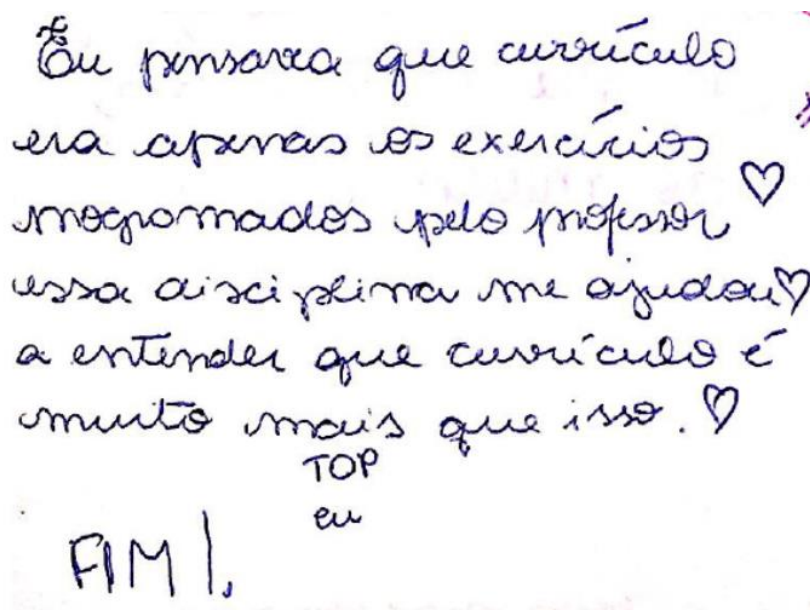 Eu pensava que currículo
era apenas os exercícios
programados pelo professor ♡
essa disciplina me ajudou ♡
a entender que currículo é
muito mais que isso. ♡
TOP
eu
FIM!